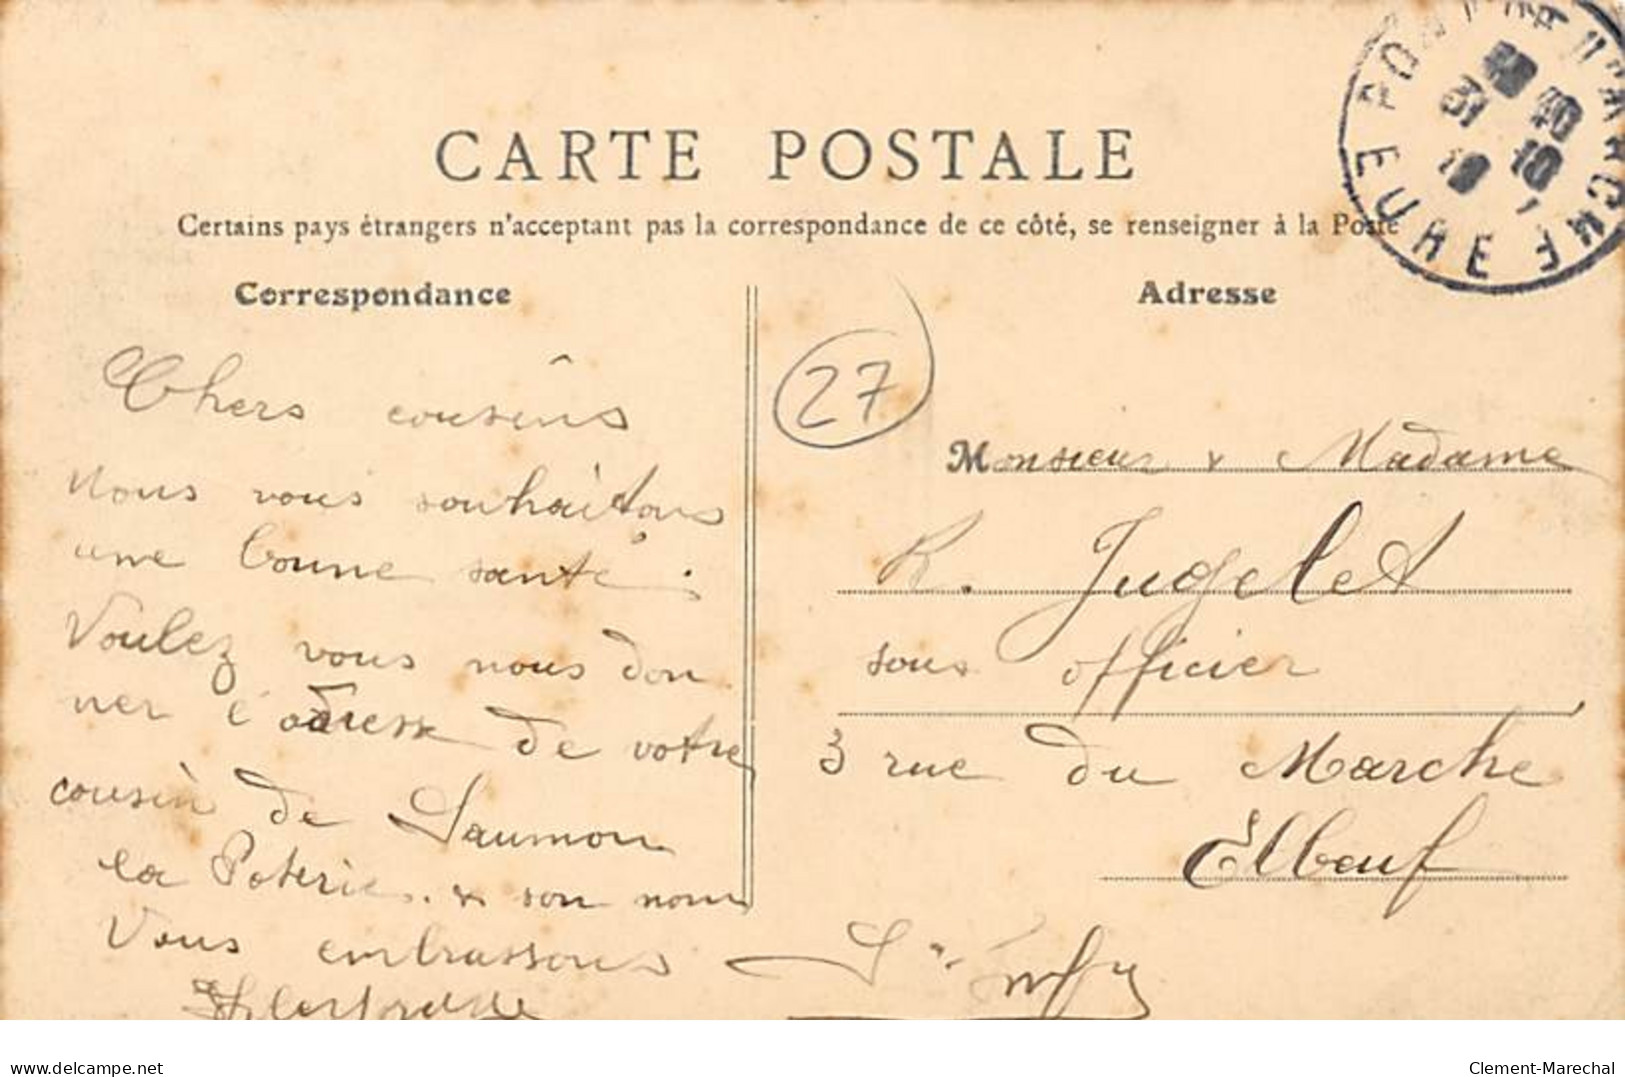 CARTE POSTALE
Certains pays étrangers n'acceptant pas la correspondance de ce côté, se renseigner à la Poste
EURE
31 10
Correspondance
Chers cousins
nous vous souhaitons
une bonne santé.
Voulez vous nous don
ner l'adresse de votre
cousin de Saumon
la Poterie. & son nom
Vous embrassons
27
Adresse
Monsieur & Madame
R. Jugelet
sous officier
3 rue du Marche
Elbeuf
delcampe.net
Clement-Marechal